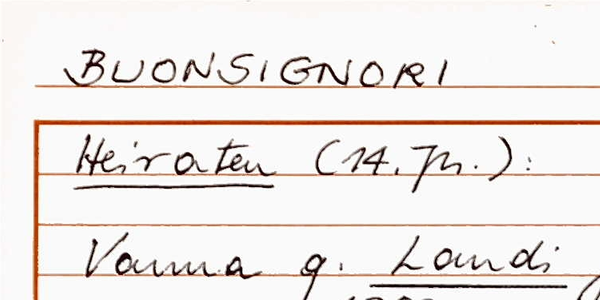 BUONSIGNORI
Heiraten (14. Jh.):
Vanna q. Landi